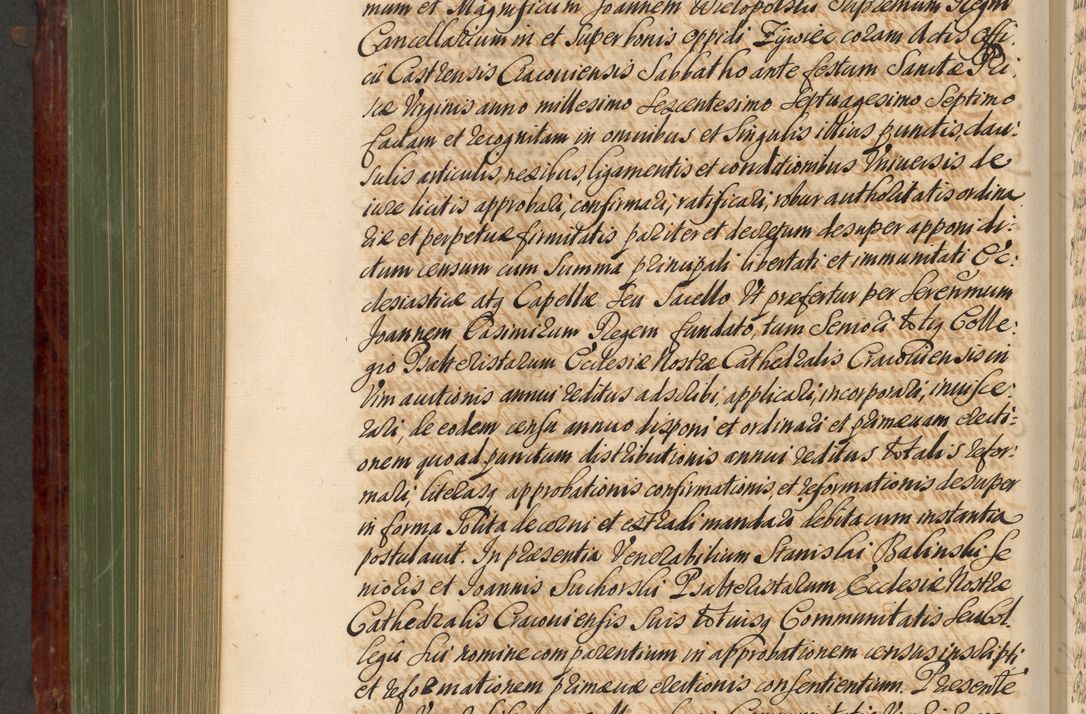 mum et Magnificum Joannem Wielopolski Supremum Regni
Cancellarium in et super bonis oppidi Zywiec coram Actis Offi:
cii Castrensis Cracouiensis Sabbatho ante festum Sanctæ Pri:
scæ Virginis anno millesimo Sexcentesimo Septuagesimo Septimo
factam et recognitam in omnibus et Singulis illius punctis, clau:
sulis articulis, nexibus, ligamentis et conditionibus Vniuersis de
iure licitis approbari, confirmari, ratificari, robur authoritatis ordina
riæ et perpetuæ firmitatis pariter et decretum desuper apponi di:
ctum censum cum Summa principali libertati et immunitati Ec:
clesiasticæ atq Capellæ Seu Sacello Vt præfertur per Serenmum
Joannem Casimirum Regem fundato, tum Seniori totiq Colle:
gio Psalteristarum Ecclesiæ Nostræ Cathedralis Cracouiensis in
Vim auctionis annui reditus adscribi, applicari, incorporari, inuisce:
rari, de eodem censu annuo disponi et ordinari et primæuam erecti:
onem quoad punctum distributionis annui reditus totalis refor:
mari, literasq approbationis confirmationis, et reformationis desuper
in forma Solita decerni et extradi mandari debita cum instantia
postulauit. In præsentia Venerabilium Stanislai Balinski Se
nioris et Joannis Suchorski Psalteristarum Ecclesiæ Nostræ
Cathedralis Cracouiensis Suis totiusq Communitatis Seu Col
legii Sui nomine comparentium in approbationem census inscripti
et reformationem primæuæ erectionis consentientium. Præsente